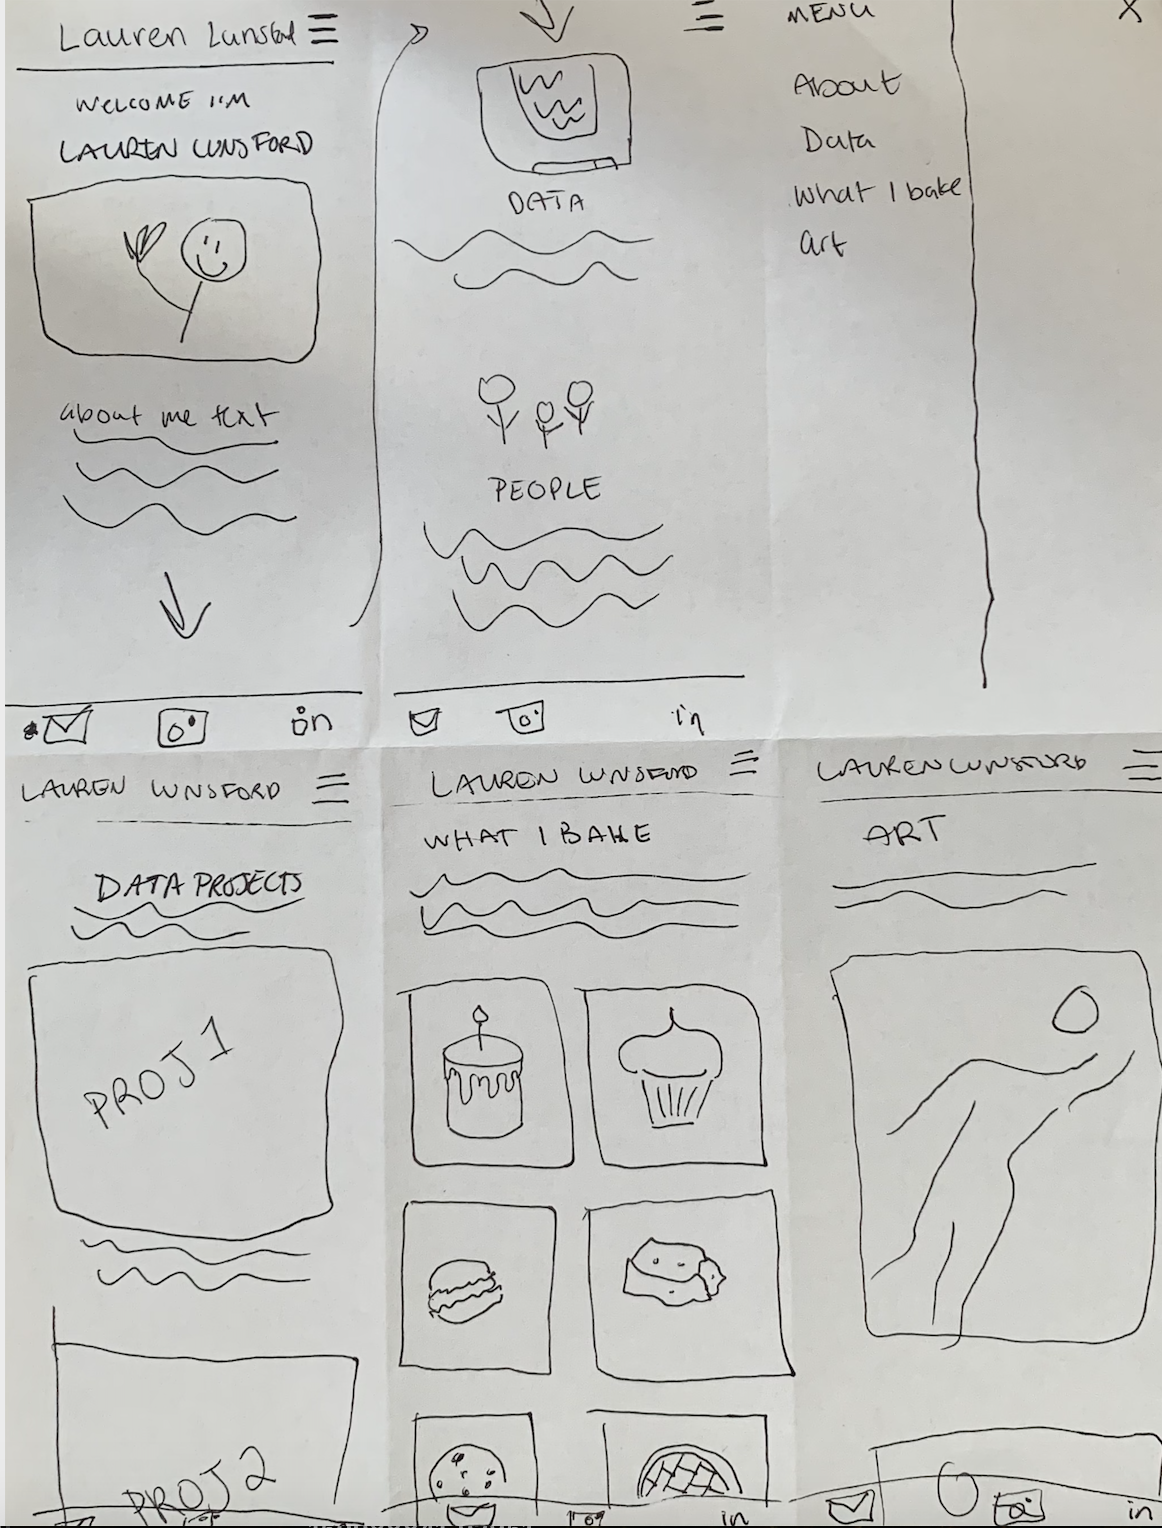 Lauren Lunsford
WELCOME I'M
LAUREN LUNSFORD
about me text
in
DATA
PEOPLE
in
MENU
X
About
Data
What I bake
art
LAUREN LUNSFORD
DATA PROJECTS
PROJ 1
PROJ 2
LAUREN LUNSFORD
WHAT I BAKE
in
LAUREN LUNSFORD
ART
in